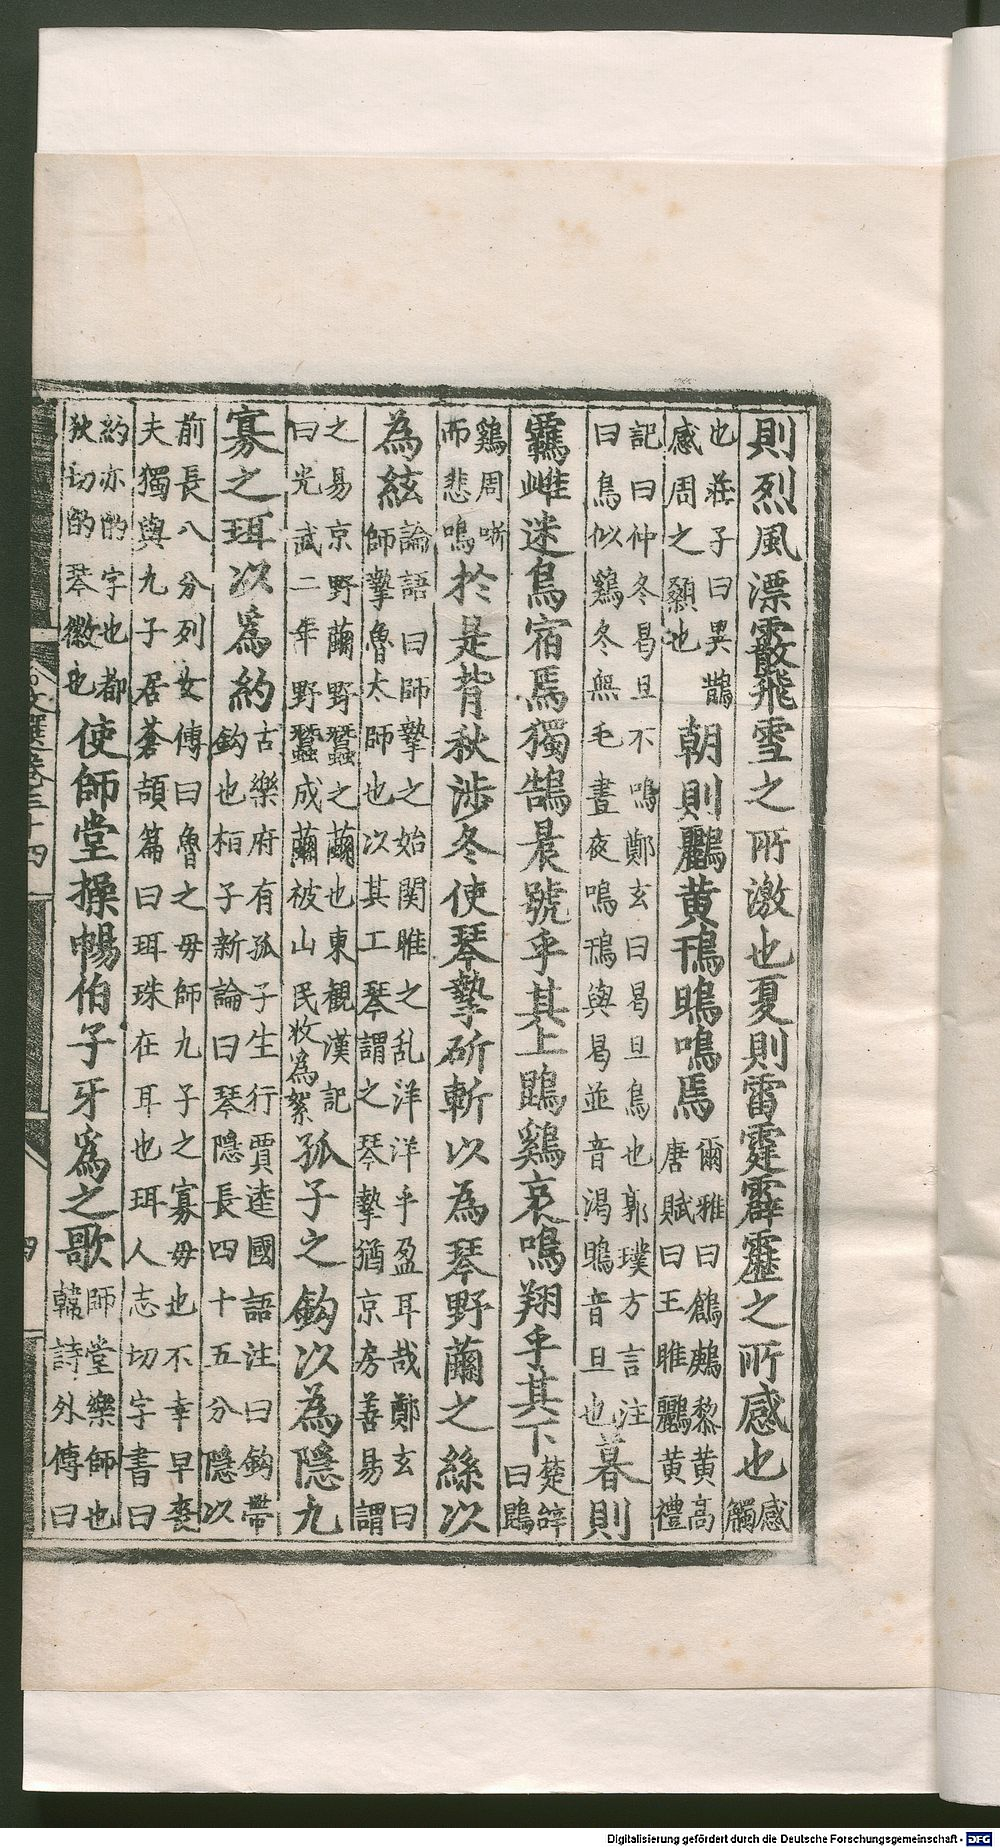 則烈風漂霰飛雪之所激也夏則雷霆霹靂之所感也感
觸
也莊子曰異鵲
感周之顙也
朝則鸝黄鳱鴠鳴焉
爾雅曰鶬鶊黎黄高
唐賦曰王雎鸝黄禮
記曰仲冬曷旦不鳴鄭玄曰曷旦鳥也郭璞方言注
曰鳥似鷄冬無毛晝夜鳴鳱與曷並音渇鴠音旦也
暮則
羈雌迷鳥宿焉獨鵠晨號乎其上鵾鷄哀鳴翔乎其下
楚辭
曰鵾
鷄周哳
而悲鳴
於是背秋渉冬使琴摯斫斬以為琴野繭之絲以
為絃
論語曰師摯之始関雎之乱洋洋乎盈耳哉鄭玄曰
師摯魯太師也以其工琴謂之琴摯猶京房善易謂
之易京野繭野蠶之繭也東観漢記
曰光武二年野蠶成繭被山民收為絮
孤子之鈎以為隱九
寡之珥以爲約
古樂府有孤子生行賈逵國語注曰鈎帶
鈎也桓子新論曰琴隱長四十五分隱以
前長八分列女傳曰魯之母師九子之寡母也不幸早喪
夫獨與九子居蒼頡篇曰珥珠在耳也珥人志切字書曰
約亦酌字也都
狄切酌琴徽也
使師堂操暢伯子牙爲之歌
師堂樂師也
韓詩外傳曰
文選卷三十四
四
Digitalisierung gefördert durch die Deutsche Forschungsgemeinschaft - DFG